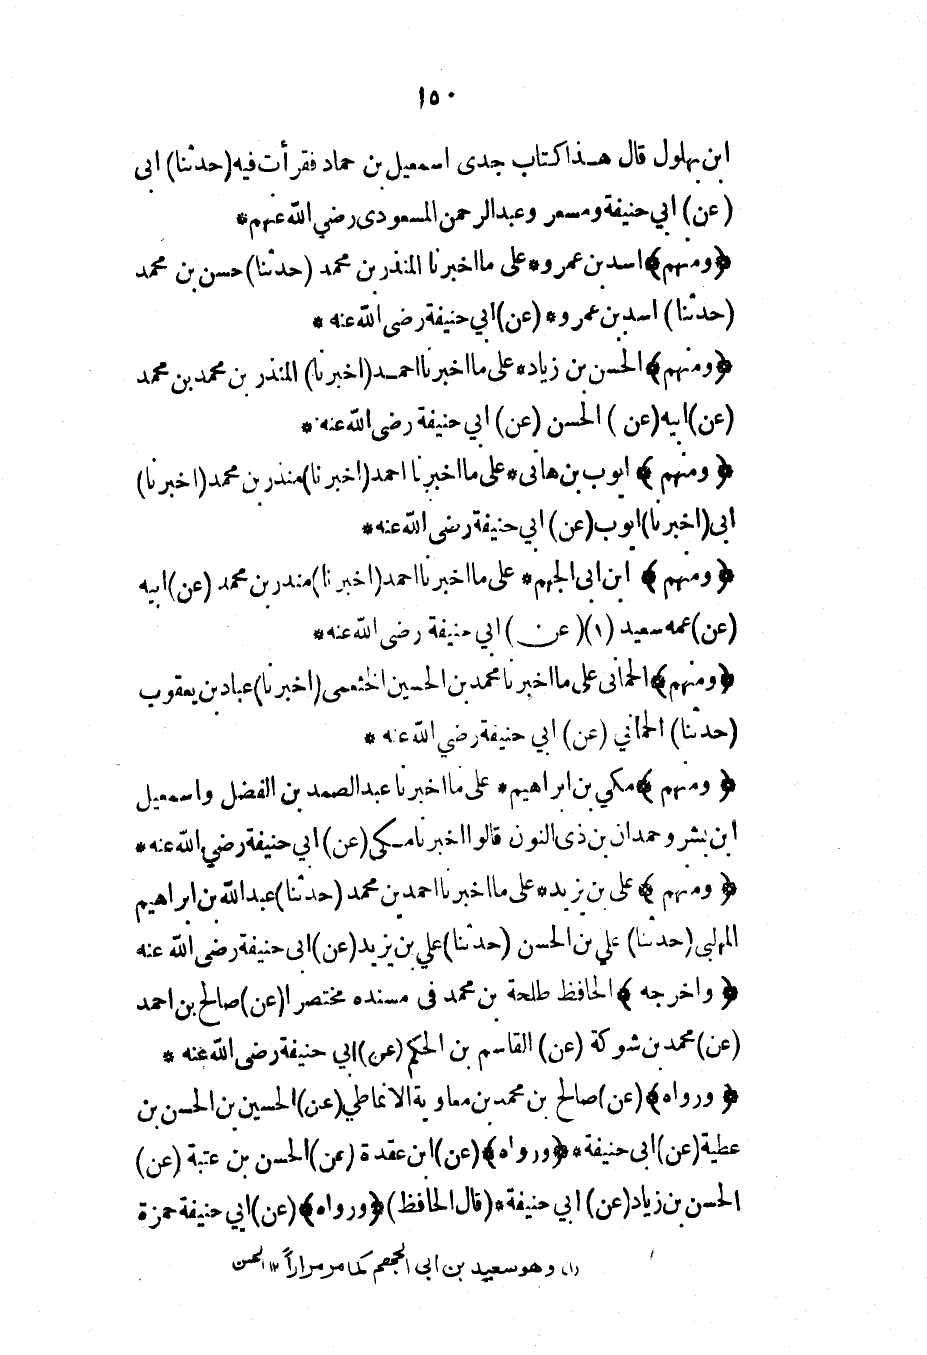 ١٥٠
ابن بهلول قال هـذا كتاب جدى اسمعيل بن حماد فقرأت فيه (حدثنا) ابى
(عن) ابي حنيفة ومسعر وعبد الرحمن المسعودى رضي الله عنهم *
﴿ومنهم﴾ اسد بن عمرو * على ما اخبرنا المنذر بن محمد (حدثنا) حسن بن محمد
(حدثنا) اسد بن عمرو * (عن) ابي حنيفة رضى الله عنه *
﴿ومنهم﴾ الحسن بن زياد * على ما اخبرنا احمـد (اخبرنا) المنذر بن محمد بن محمد
(عن) ابيه (عن ) الحسن (عن) ابي حنيفة رضى الله عنه *
﴿ ومنهم ﴾ ايوب بن هانى * على ما اخبرنا احمد (اخبرنا) منذر بن محمد (اخبرنا)
ابى (اخبرنا) ايوب (عن) ابي حنيفة رضى الله عنه *
﴿ ومنهم ﴾ ابن ابى الجهم * على ما اخبرنا احمد (اخبرنا) منذر بن محمد (عن) ابيه
(عن) عمه سعيد (١) (عن) ابي حنيفة رضى الله عنه *
﴿ومنهم﴾ الحمانى على ما اخبرنا محمد بن الحسين الخثعمى (اخبرنا) عباد بن يعقوب
(حدثنا) الحماني (عن) ابي حنيفة رضي الله عنه *
﴿ ومنهم ﴾ مكي بن ابراهيم * على ما اخبرنا عبد الصمد بن الفضل واسمعيل
ابن بشر وحمدان بن ذى النون قالوا اخبرنا مـكى (عن) ابي حنيفة رضي الله عنه *
﴿ ومنهم ﴾ على بن يزيد * على ما اخبرنا احمد بن محمد (حدثنا) عبد الله بن ابراهيم
المهلبى (حدثنا) علي بن الحسن (حدثنا) علي بن يزيد (عن) ابى حنيفة رضى الله عنه
﴿ واخرجه ﴾ الحافظ طلحة بن محمد فى مسنده مختصرا (عن) صالح بن احمد
(عن) محمد بن شوكة (عن) القاسم بن الحكم (عن) ابي حنيفة رضى الله عنه *
﴿ ورواه﴾ (عن) صالح بن محمد بن معاوية الانماطي (عن) الحسين بن الحسن بن
عطية (عن) ابى حنيفة * ﴿ورواه﴾ (عن) ابن عقدة (عن) الحسن بن عتبة (عن)
الحسن بن زياد (عن) ابي حنيفة * (قال الحافظ) ﴿ورواه﴾ (عن) ابي حنيفة حمزة
(١) وهو سعيد بن ابى الجهم كما مر مراراً ١٢ الحسن